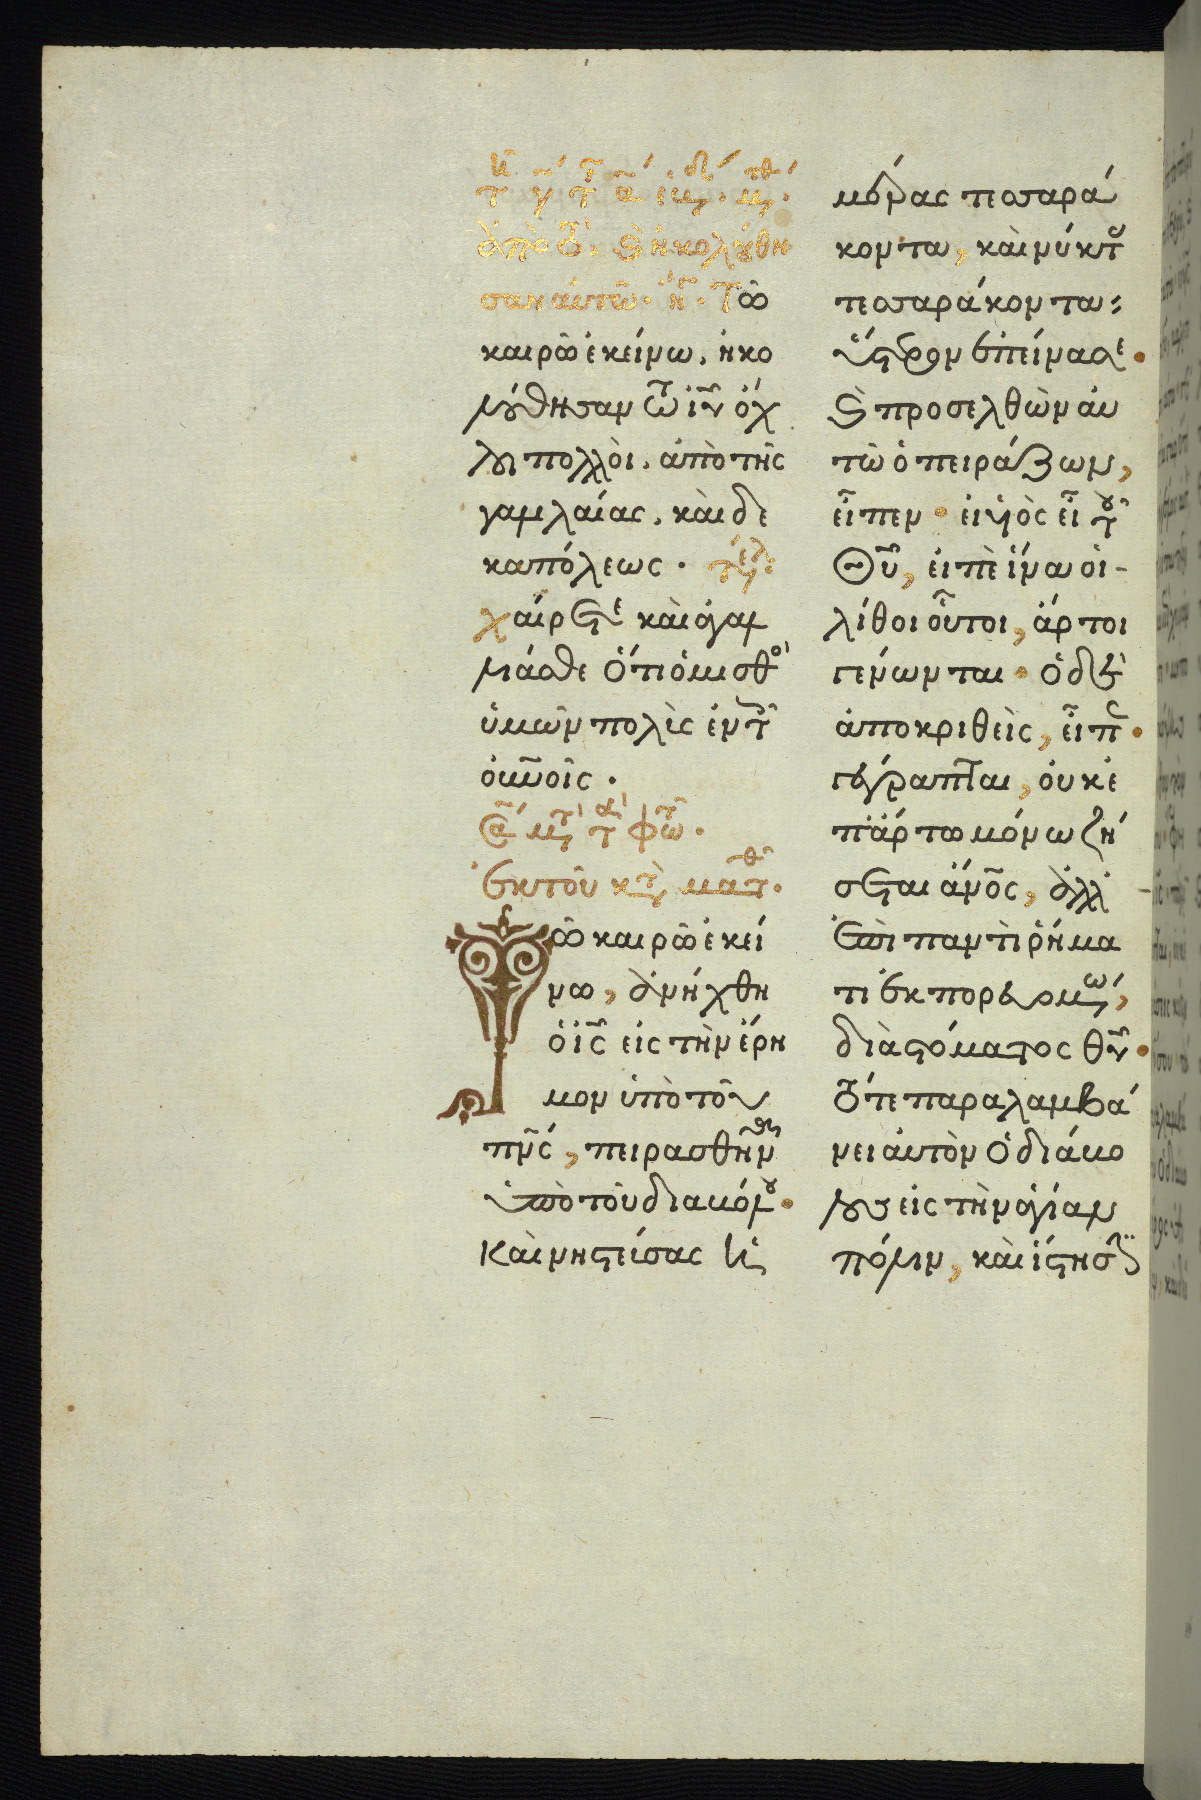 ἀπὸ ὀ. ϛ ἠκολούθη
σαν αὐτῶ. Τῶ
καιρῶ ἐκείνω, ἠκο
λούθησαν τῶ ἰῦ ὄχ
λοι πολλοὶ, ἀπὸ τῆς
γαλιλαίας, καὶ δε
καπόλεως. τέλ
χαίρετε καὶ ἀγαλ
λιᾶσθε ὅτι ὁ μισθὸ
ὑμῶν πολὺς ἐν τ
οὐνοῖς.
Ἐκ τοῦ κτ ματθ.
Τῶ καιρῶ ἐκεί
νω, ἀνήχθη
ὁ ἰς εἰς τὴν ἔρη
μον ὑπὸ τοῦ
πνς, πειρασθῆναι
ὑπὸ τοῦ διαβόλου.
Καὶ νηστεύσας ἡ
μέρας τεσσαρά
κοντα, καὶ νύκτ
τεσσαράκοντα:
ὕστερον ἐπείνασε.
ϛ προσελθὼν αὐ
τῶ ὁ πειράζων,
εἶπεν. εἰ υἱὸς εἶ τοῦ
Θῦ, εἰπὲ ἵνα οἱ
λίθοι οὗτοι, ἄρτοι
γένωνται. ὁ δὲ
ἀποκριθεὶς, εἶπε.
γέγραπται, οὐκ ἐ
π' ἄρτω μόνω ζή
σεται ἄνος, ἀλλ'
ἐπὶ παντὶ ῥήμα
τι ἐκπορευομένω,
διὰ στόματος θῦ.
Τότε παραλαμβά
νει αὐτὸν ὁ διάβο
λος εἰς τὴν ἁγίαν
πόλιν, καὶ ἵστησιν